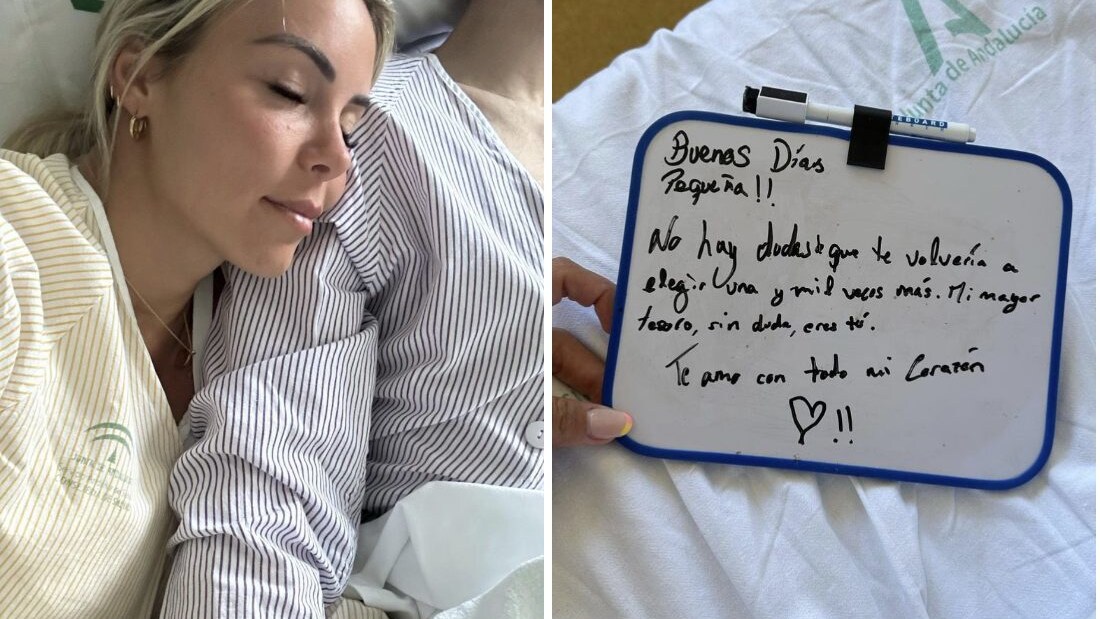 Junta de Andalucía
EBOARD
Buenos Días
Pequeña!!
No hay dudas de que te volvería a
elegir una y mil veces más. Mi mayor
tesoro, sin duda, eres tú.
Te amo con todo mi Corazón
♡!!